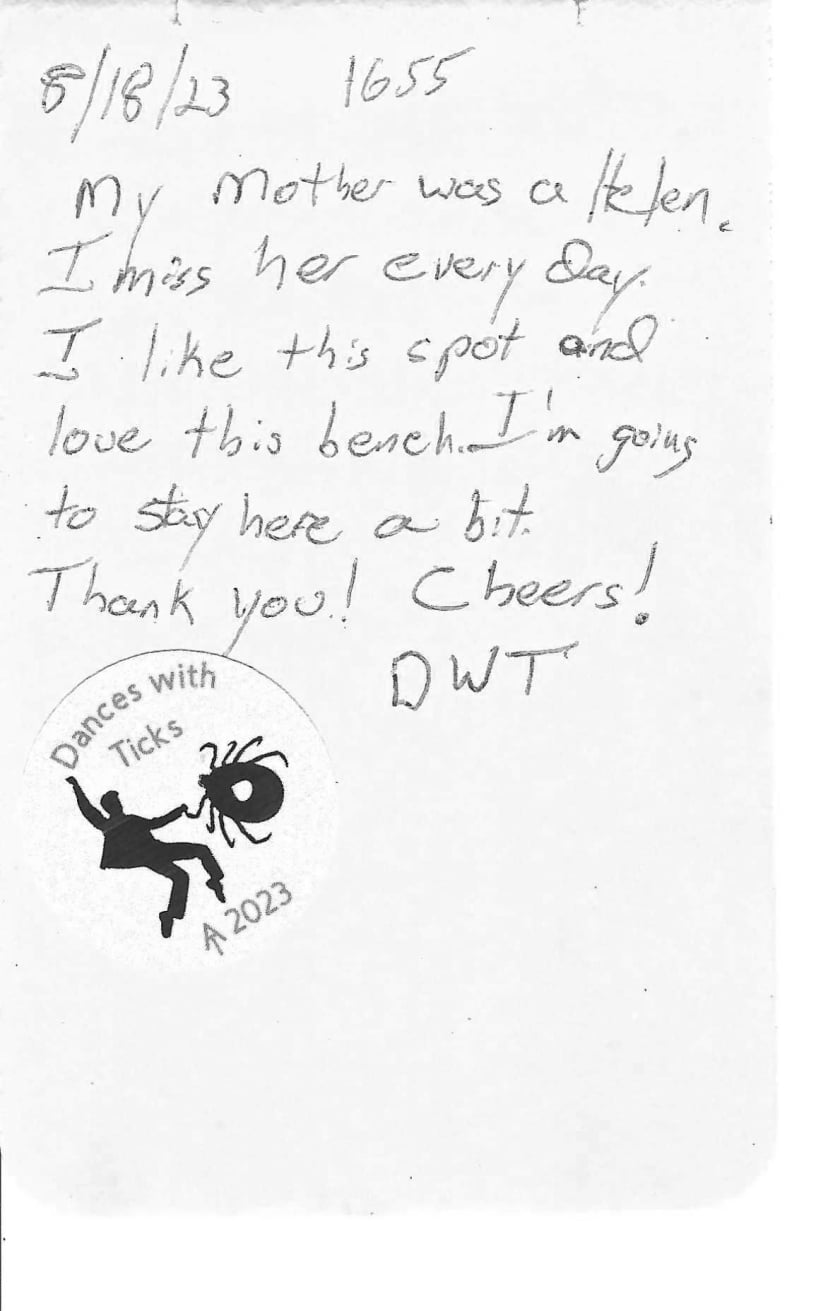 8/18/23 1655
My Mother was a Helen.
I miss her every day.
I like this spot and
love this bench. I'm going
to stay here a bit.
Thank you! Cheers!
DWT
Dances with
Ticks
AT 2023